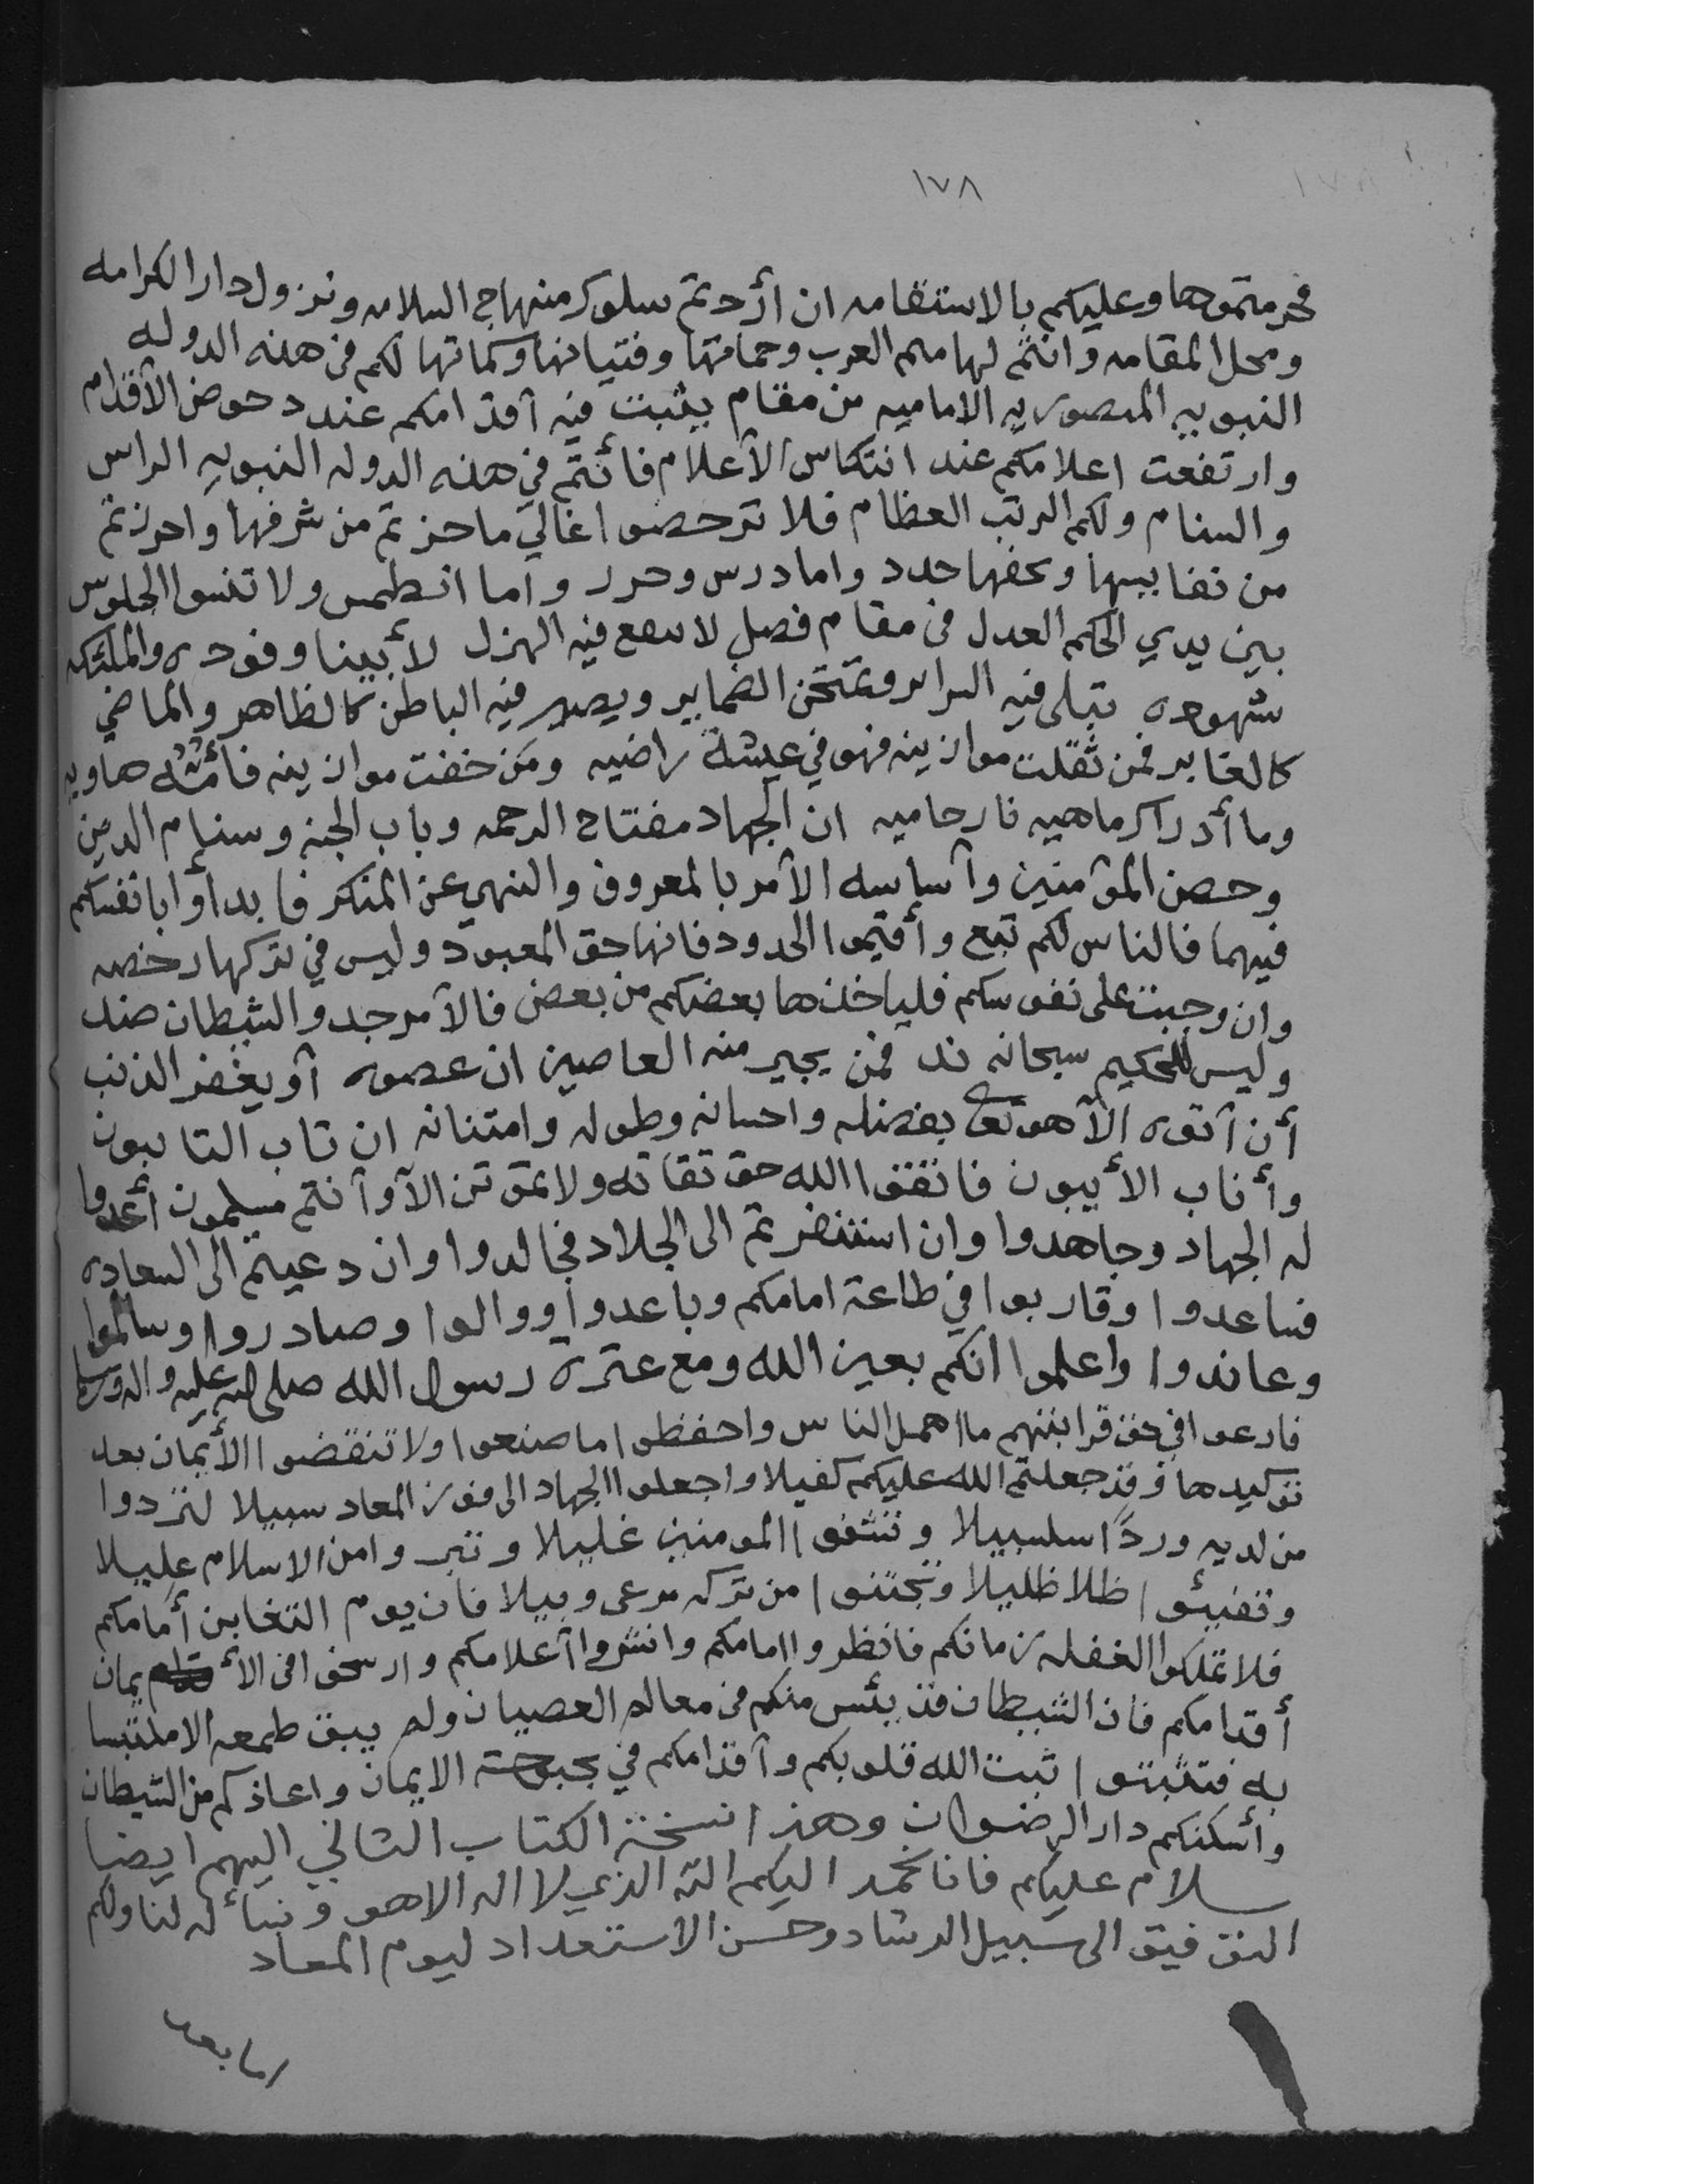 ١٧٨
فحرمتموها وعليكم بالاستقامه ان أردتم سلوك منهاج السلامه ونزول دار الكرامه
ومحل المقامه وانتم لهاميم العرب وحماتها وفتيانها وكماتها لكم في هذه الدوله
النبويه المنصوريه الاماميه من مقام يثبت فيه أقدامكم عند دحوض الأقدام
وارتفعت اعلامكم عند انتكاس الأعلام فأنتم في هذه الدوله النبويه الراس
والسنام ولكم الرتب العظام فلا ترخصوا غالي ما حزتم من شرفها واحرزتم
من نفايسها وتحفها جدد واما درس وحرر واما انطمس ولا تنسوا الجلوس
بين يدي الحكم العدل في مقام فصل لا ينفع فيه الهزل لأبينا وفوده والملئكه
شهوده تبلى فيه السراير وتمتحن الضماير ويصير فيه الباطن كالظاهر والماضي
كالغابر فمن ثقلت موازينه فهو في عيشة راضيه ومن خفت موازينه فأمّه هاويه
وما أدراك ماهيه نار حاميه ان الجهاد مفتاح الرحمه وباب الجنه وسنام الدين
وحصن المؤمنين وأساسه الأمر بالمعروف والنهي عن المنكر فابدأوا بانفسكم
فيهما فالناس لكم تبع وأقيموا الحدود فانها حق المعبود وليس في تركها رخصه
وان وجبت على نفوسكم فلياخذها بعضكم من بعض فالأمر جد والشيطان ضد
وليس للحكيم سبحانه ند فمن يجير منه العاصين ان عصوه أو يغفر الذنب
أن أتوه الأ هو تعا بفضله واحسانه وطوله وامتنانه ان تاب التايبون
وأناب الأيبون فاتقوا الله حق تقاته ولا تموتن الآ وأنتم مسلمون أعدوا
له الجهاد وجاهدوا وان استنفرتم الى الجلاد فجالدوا وان دعيتم الى السعاده
فساعدوا وقاربوا في طاعة امامكم وباعدوا ووالوا وصادروا وسالموا
وعاندوا واعلموا انكم بعين الله ومع عترة رسول الله صلى الله عليه واله وسلم
فارعوا في حق قرابتهم ما اهمل الناس واحفظوا ما صنعوا ولا تنقضوا الأيمان بعد
توكيدها وقد جعلتم الله عليكم كفيلا واجعلوا الجهاد الى فوز المعاد سبيلا لتردوا
من لديه وردًا سلسبيلا وتشفوا المومنين غليلا وتبروا من الاسلام عليلا
وتفيئوا ظلا ظليلا وتجتنوا من تركه مرعى وبيلا فان يوم التغابن أمامكم
فلا تملكوا الغفله زمانكم فانظروا امامكم وانشروا أعلامكم وارسخوا في الأيمان
أقدامكم فان الشيطان قد يئس منكم في معالم العصيان ولم يبق طمعه الا ملتبسا
به فتثبتوا ثبت الله قلوبكم وأقدامكم في بحبوحة الايمان واعاذكم من الشيطان
وأسكنكم دار الرضوان وهذا نسخة الكتاب الثاني اليهم ايضا
سلام عليكم فانا نحمد اليكم الله الذي لا اله الا هو ونسأله لنا ولكم
التوفيق الى سبيل الرشاد وحسن الاستعداد ليوم المعاد
اما بعد